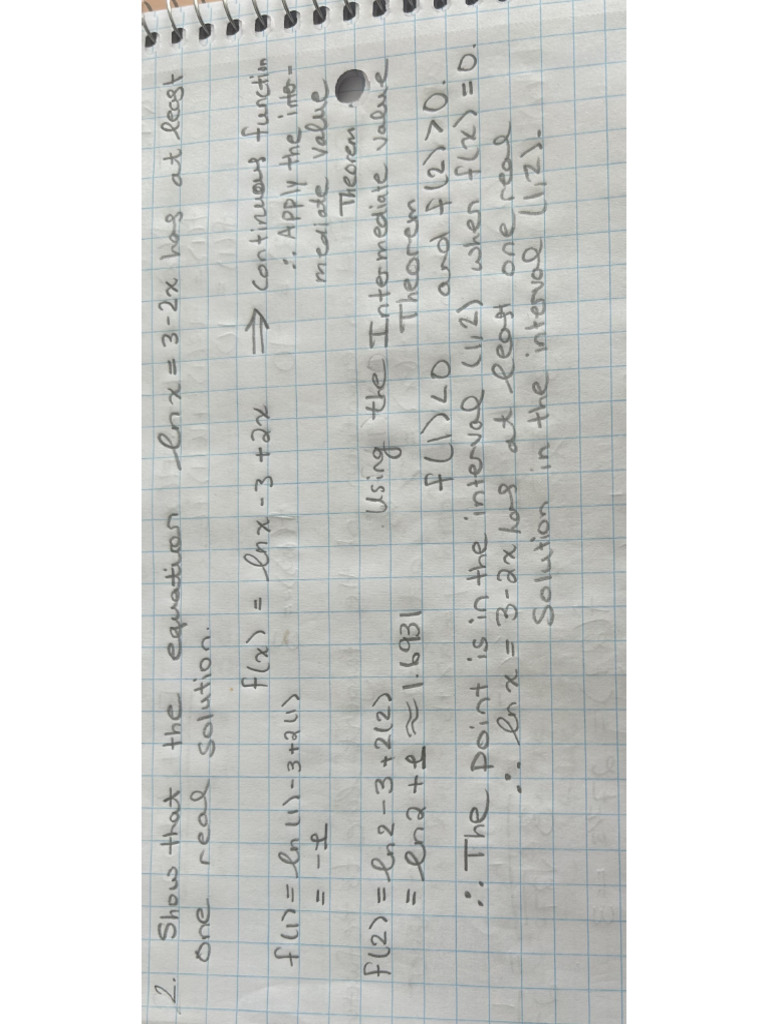 2. Show that the equation ln x = 3-2x has at least
one real solution.
f(x) = ln x - 3 + 2x ⇒ continuous function
∴ Apply the inter-
mediate value
Theorem.
f(1) = ln(1) - 3 + 2(1)
= -1
f(2) = ln2 - 3 + 2(2)
= ln2 + 1 ≈ 1.6931
Using the Intermediate value
Theorem
f(1) < 0 and f(2) > 0.
∴ The point is in the interval (1,2) when f(x) = 0.
∴ ln x = 3-2x has at least one real
Solution in the interval (1,2).